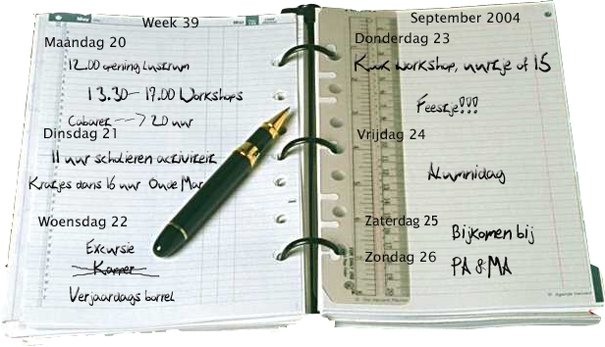 Week 39
Maandag 20
12.00 opening Lustrum
13.30-17.00 Workshops
Cabaret ---> 20 uur
Dinsdag 21
11 uur scholieren activiteit
Kratjes dans 16 uur Oude Mar
Woensdag 22
Excursie
Kamer
Verjaardags borrel
September 2004
Donderdag 23
workshop, uurtje of 15
Feestje!!!
Vrijdag 24
Alumnidag
Zaterdag 25
Bijkomen bij
Zondag 26
PA & MA